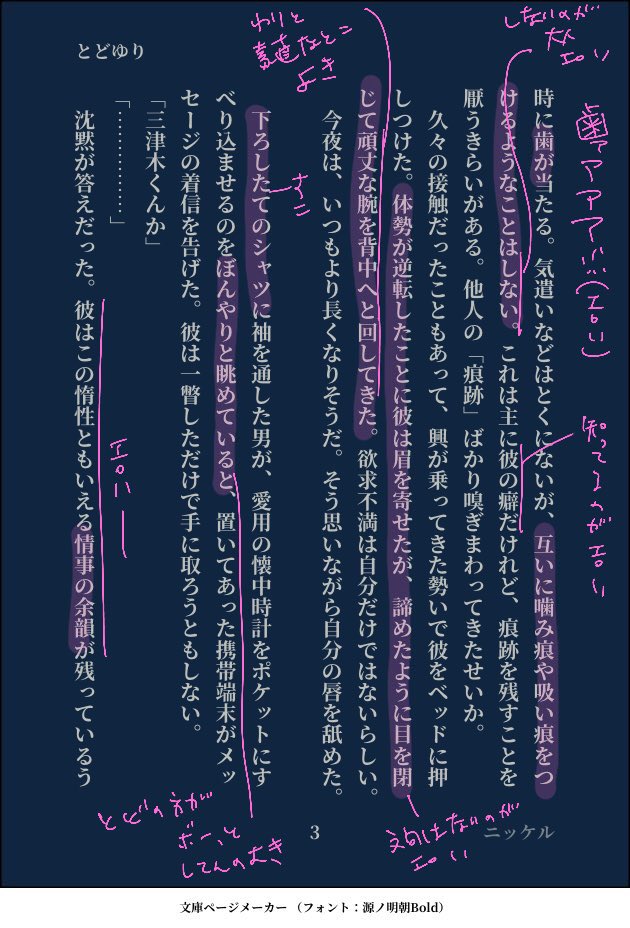 とどゆり
時に歯が当たる。気遣いなどはとくにないが、互いに噛み痕や吸い痕をつ
けるようなことはしない。これは主に彼の癖だけれど、痕跡を残すことを
厭うきらいがある。他人の「痕跡」ばかり嗅ぎまわってきたせいか。
久々の接触だったこともあって、興が乗ってきた勢いで彼をベッドに押
しつけた。体勢が逆転したことに彼は眉を寄せたが、諦めたように目を閉
じて頑丈な腕を背中へと回してきた。欲求不満は自分だけではないらしい。
今夜は、いつもより長くなりそうだ。そう思いながら自分の唇を舐めた。
下ろしたてのシャツに袖を通した男が、愛用の懐中時計をポケットにす
べり込ませるのをぼんやりと眺めていると、置いてあった携帯端末がメッ
セージの着信を告げた。彼は一瞥しただけで手に取ろうともしない。
「三津木くんか」
「……………」
沈黙が答えだった。彼はこの惰性ともいえる情事の余韻が残っているう
歯ァアアア!!!(エロい)
知ってるのがエロい
しないのが
大人
エロい
わりと
素直なとこ
よき
文句はないのが
エロい
すこ
エロい
とどの方が
ボーっと
してんのよき
3
ニッケル
文庫ページメーカー（フォント：源ノ明朝Bold）